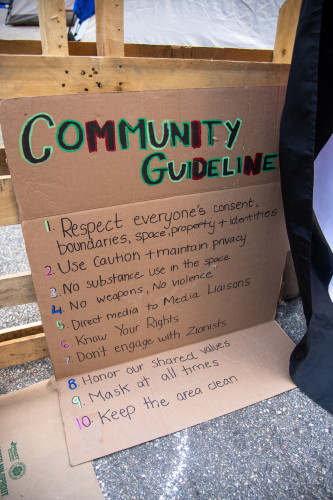 COMMUNITY
GUIDELINE
1. Respect everyone's consent,
boundaries, space, property + identities
2. Use caution + maintain privacy
3. No substance use in the space
4. No weapons, No violence
5. Direct media to Media Liaisons
6. Know Your Rights
7. Don't engage with Zionists
8. Honor our shared values
9. Mask at all times
10. Keep the area clean